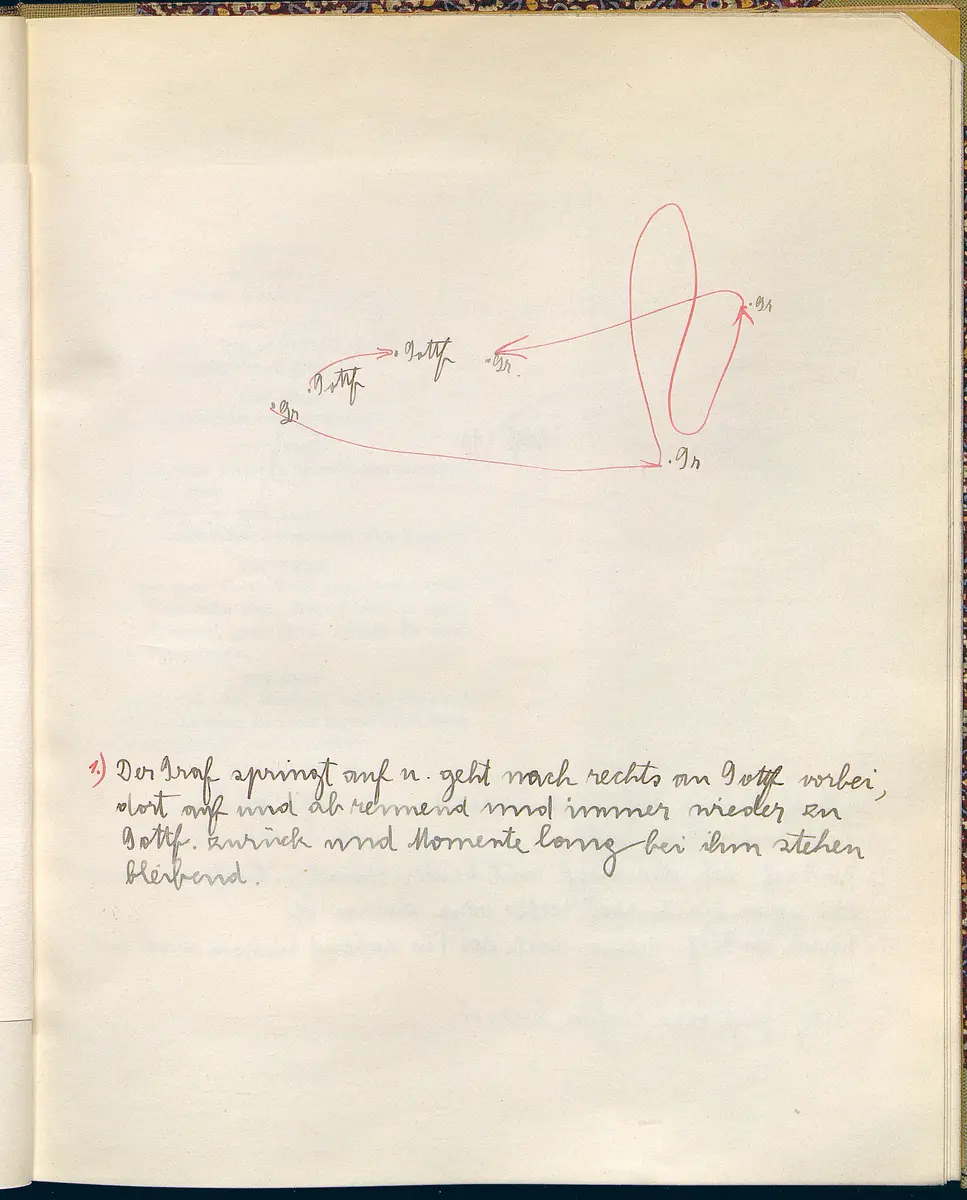 . Gr
. Gottf
. Gr.
. Gottf
. Gr
. Gr
1.) Der Graf springt auf u. geht nach rechts an Gottf vorbei,
dort auf und ab rennend und immer wieder zu
Gottf. zurück und Momente lang bei ihm stehen
bleibend.